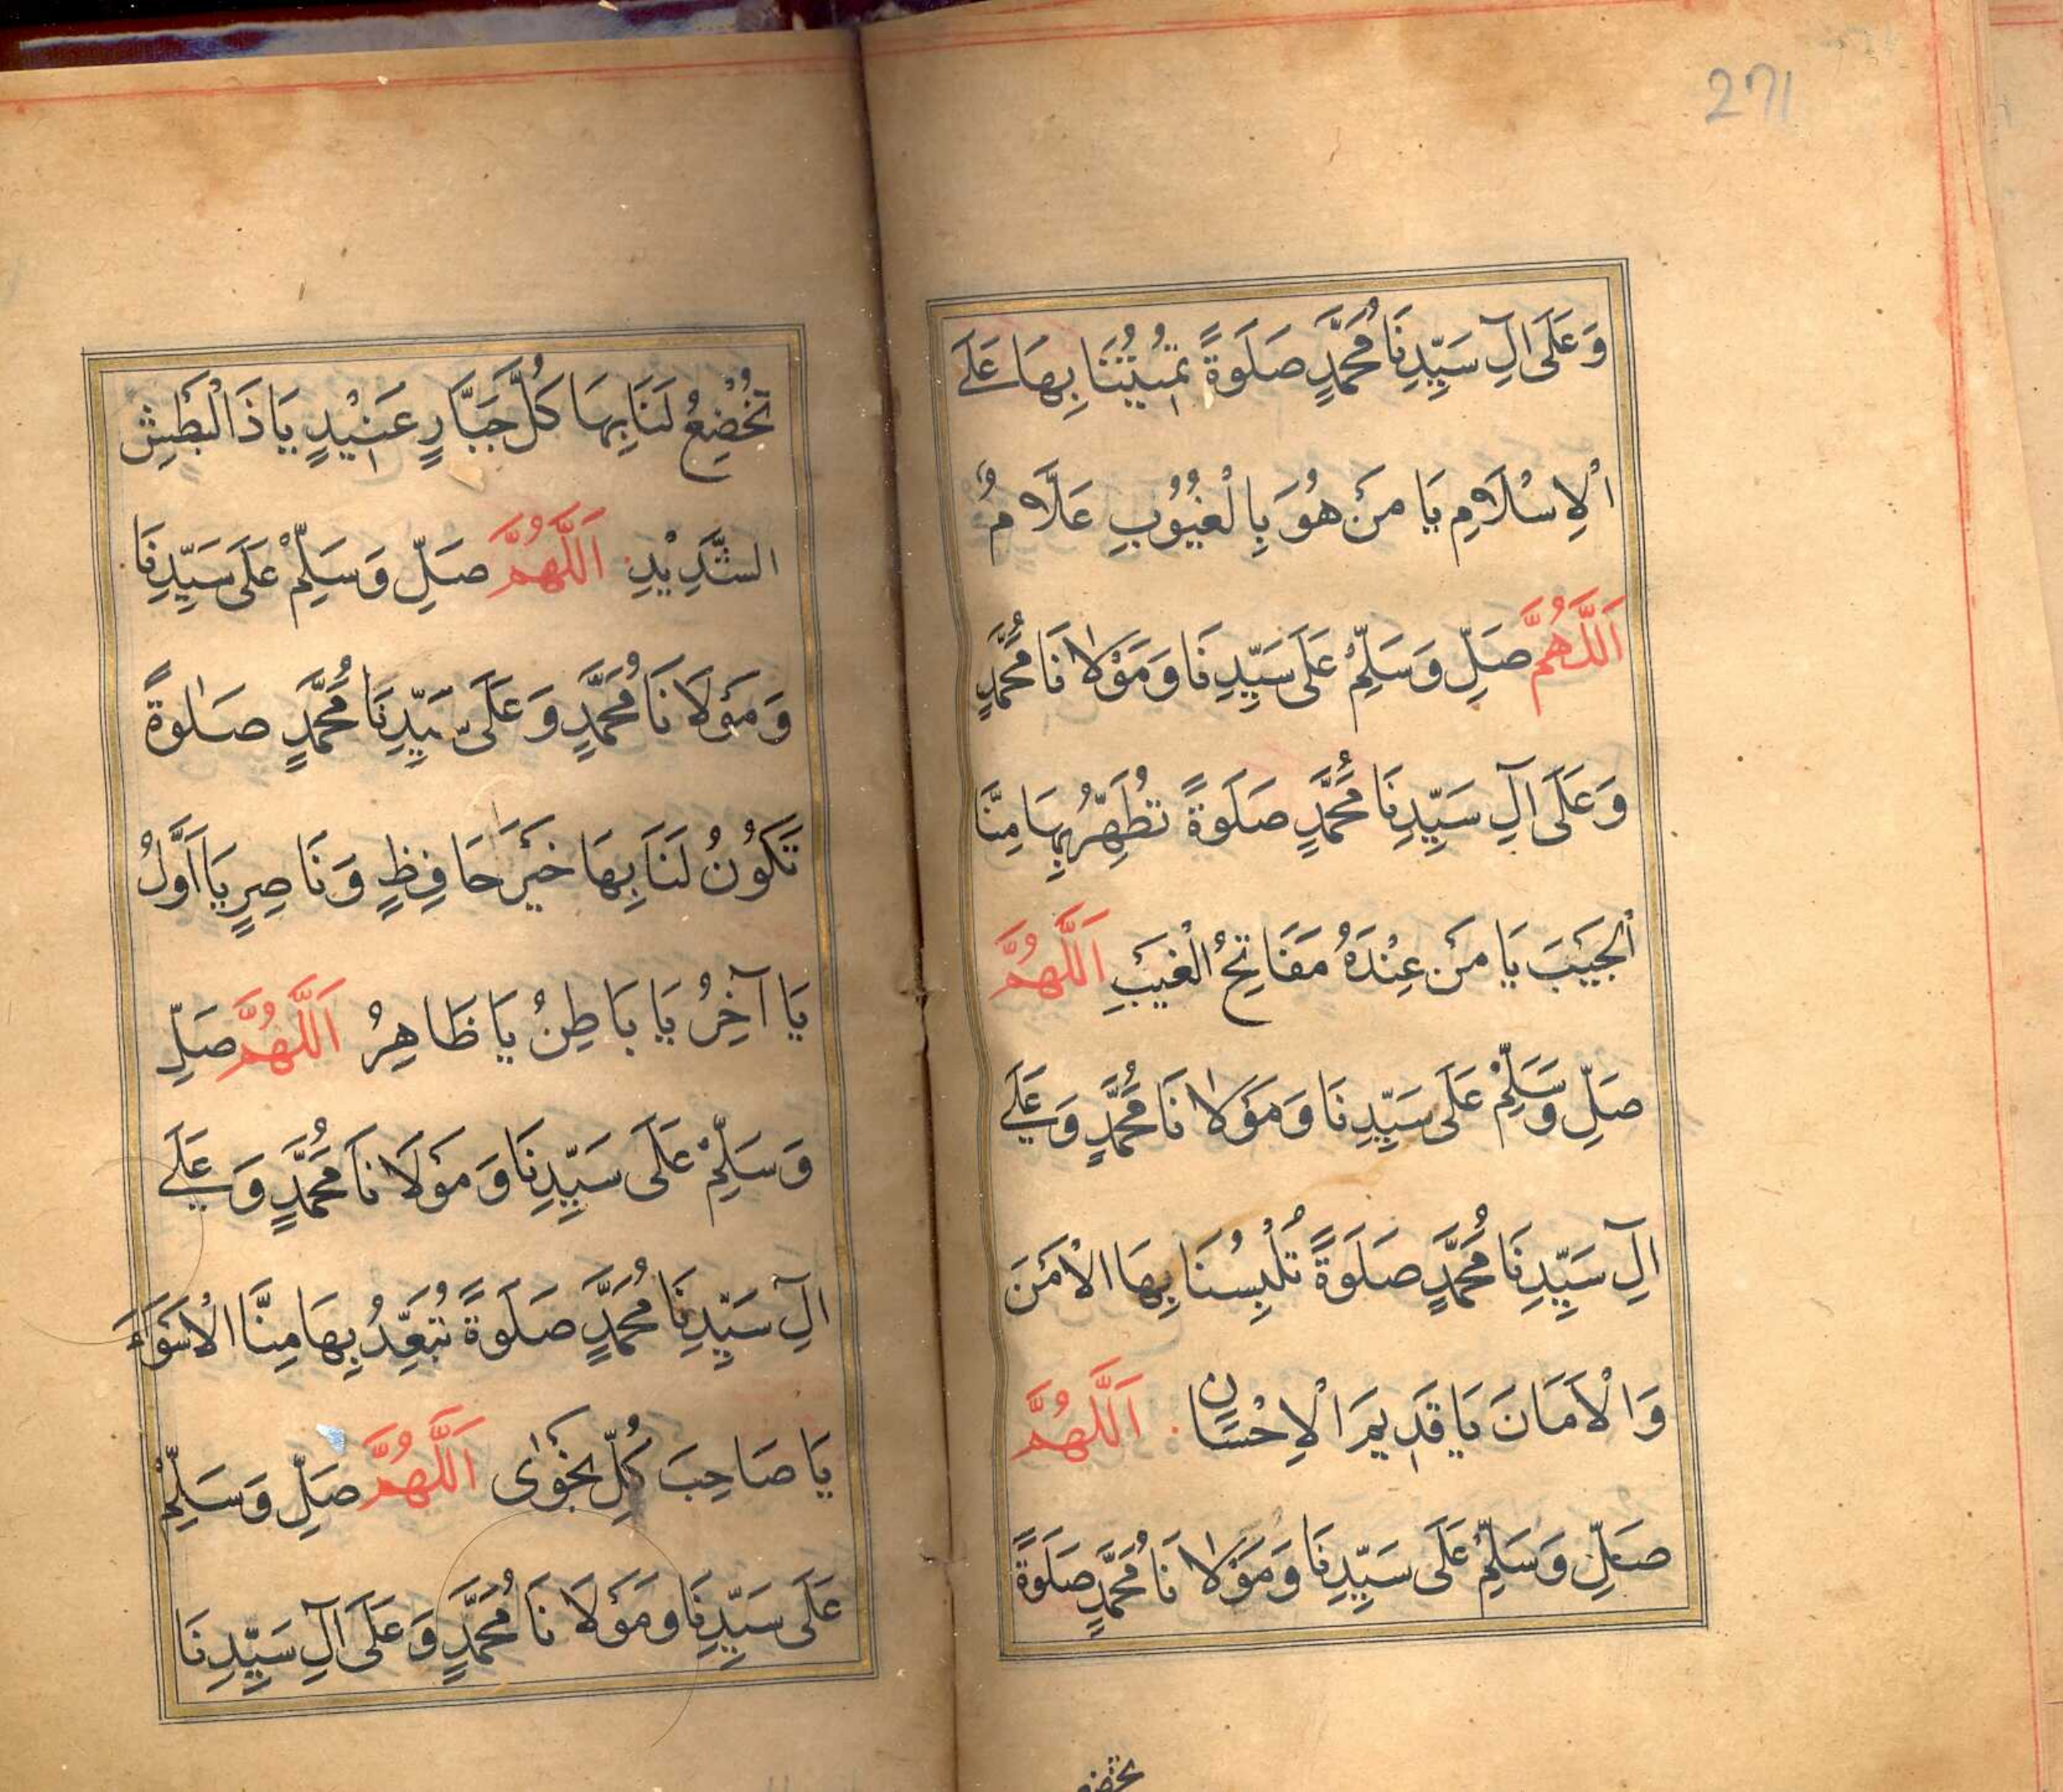 271
وَعَلَى اٰلِ سَيِّدِنَا مُحَمَّدٍ صَلَوةً تُمِيْتُنَا بِهَا عَلَے
الْاِسْلَامِ يَا مَنْ هُوَ بِالْغُيُوْبِ عَلَّامُ
اَللّٰهُمَّ صَلِّ وَسَلِّمْ عَلَى سَيِّدِنَا وَمَوْلَانَا مُحَمَّدٍ
وَعَلَى اٰلِ سَيِّدِنَا مُحَمَّدٍ صَلَوةً تُطَهِّرُ بِهَا مِنَّا
الْجَيْبَ يَا مَنْ عِنْدَهُ مَفَاتِحُ الْغَيْبِ اَللّٰهُمَّ
صَلِّ وَسَلِّمْ عَلَى سَيِّدِنَا وَمَوْلَانَا مُحَمَّدٍ وَعَلَے
اٰلِ سَيِّدِنَا مُحَمَّدٍ صَلَوةً تُلْبِسُنَا بِهَا الْاَمْنَ
وَالْاَمَانَ يَا قَدِيمَ الْاِحْسَانِ اَللّٰهُمَّ
صَلِّ وَسَلِّمْ عَلَى سَيِّدِنَا وَمَوْلَانَا مُحَمَّدٍ صَلَوةً
تخضع
تَخْضِعُ لَنَا بِهَا كُلَّ جَبَّارٍ عَنِيْدٍ يَا ذَا الْبَطْشِ
الشَّدِيْدِ اَللّٰهُمَّ صَلِّ وَسَلِّمْ عَلَى سَيِّدِنَا
وَمَوْلَانَا مُحَمَّدٍ وَعَلَى سَيِّدِنَا مُحَمَّدٍ صَلٰوةً
تَكُوْنُ لَنَا بِهَا خَيْرَ حَافِظٍ وَنَاصِرٍ يَا اَوَّلُ
يَا آخِرُ يَا بَاطِنُ يَا ظَاهِرُ اَللّٰهُمَّ صَلِّ
وَسَلِّمْ عَلَى سَيِّدِنَا وَمَوْلَانَا مُحَمَّدٍ وَعَلَے
اٰلِ سَيِّدِنَا مُحَمَّدٍ صَلَوةً تُبَعِّدُ بِهَا مِنَّا الْاَسْوَاءَ
يَا صَاحِبَ كُلِّ نَجْوٰى اَللّٰهُمَّ صَلِّ وَسَلِّمْ
عَلَى سَيِّدِنَا وَمَوْلَانَا مُحَمَّدٍ وَعَلَى اٰلِ سَيِّدِنَا